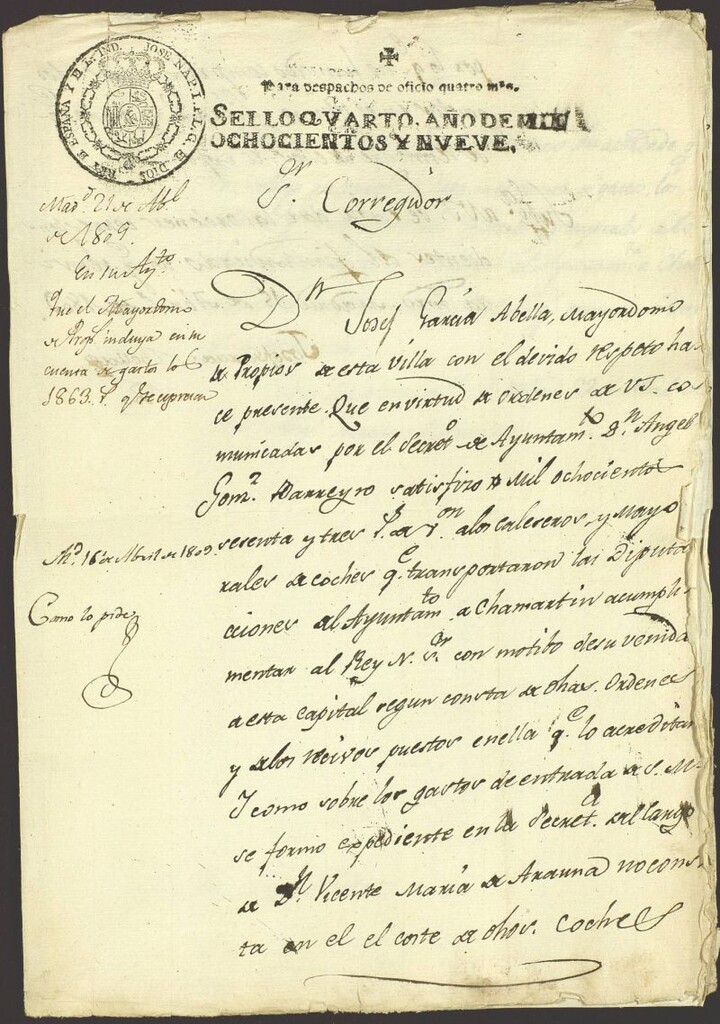 JOSE NAP. I. P. L. G. D DIOS REY D ESPAÑA Y D L. IND.
Para despachos de oficio quatro mrs.
SELLO QVARTO. AÑO DE MIL
OCHOCIENTOS Y NUEVE.
Sr. Corregidor
Madd. 21 de Abl
de 1809.
En su Aytto
Que el Mayordomo
de Props incluya en su
cuenta de gastos los
1863. rs. qe se expresan
Md. 16 de Abril de 1809
Como lo pide
Dn Josef García Abella, Mayordomo
de Propios de esta Villa con el devido respeto ha-
ce presente. Que en virtud de ordenes de VS. co-
municadas por el Secreto de Ayuntamto Dn Angel
Gomz Barreyro satisfizo Mil ochocientos
sesenta y tres rs. de von a los caleseros, y Mayo
rales de coches qe transportaron las Diputa-
ciones del Ayuntamto a Chamartin a cumpli-
mentar al Rey N. Sr. con motibo de su venida
a esta capital segun consta de dhas. Ordenes
y de los recivos puestos en ella qe lo acreditan
Y como sobre los gastos de entrada de S. M.
se formo expediente en la Secreta. del cargo
de Dn Vicente María de Arauna no cons-
ta en el el coste de dhos. Coches